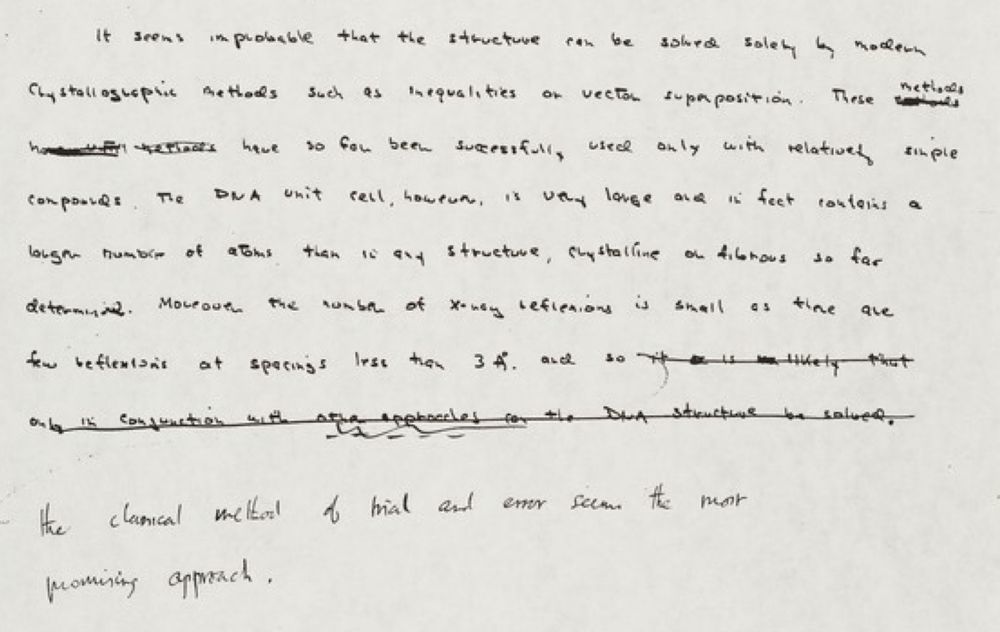 It seems improbable that the structure can be solved solely by modern
Crystallographic methods such as inequalities or vector superposition. These methods
have so far been successfully used only with relatively simple
compounds. The DNA unit cell, however, is very large and in fact contains a
larger number of atoms than in any structure, crystalline or fibrous so far
determined. Moreover the number of X-ray reflexions is small as there are
few reflexions at spacings less than 3 Å. and so it is likely that
only in conjunction with other approaches can the DNA structure be solved.
the classical method of trial and error seems the most
promising approach.